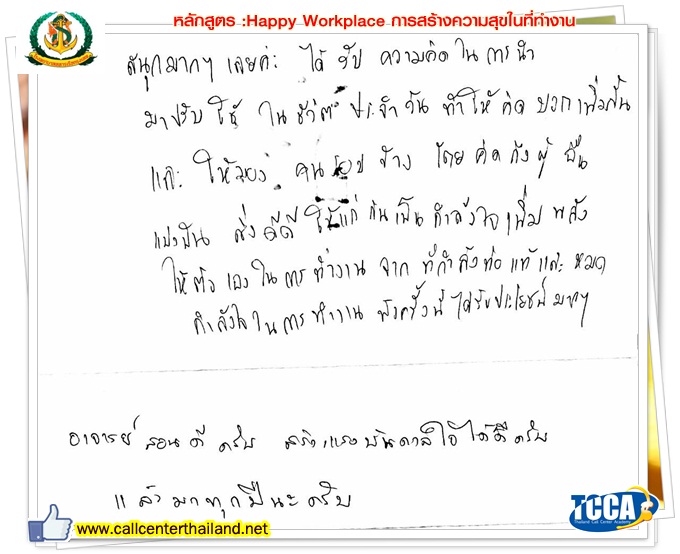 หลักสูตร :Happy Workplace การสร้างความสุขในที่ทำงาน
สนุกมากๆ เลยค่ะ ได้ รับ ความคิด ในการนำ
มาปรับ ใช้ ในชีวิต ประจำวัน ทำให้ คิด บวก เพิ่มขึ้น
และ ให้มอง คนรอบ ข้าง โดย คิด ถึง ผู้ อื่น
แบ่งปัน สิ่ง ดีดี ให้แก่ กันเป็น กำลังใจ เพิ่ม พลัง
ให้ตัว เองในการ ทำงาน จาก ที่กำลังท้อ แท้และ หมด
กำลังใจในการ ทำงาน ฟังครั้งนี้ ได้รับประโยชน์ มากๆ
อาจารย์ สอน ดี ครับ สร้างแรงบันดาลใจ ได้ดี ครับ
แล้ว มาทุกปีนะครับ
www.callcenterthailand.net
TCCA
Thailand Call Center Academy